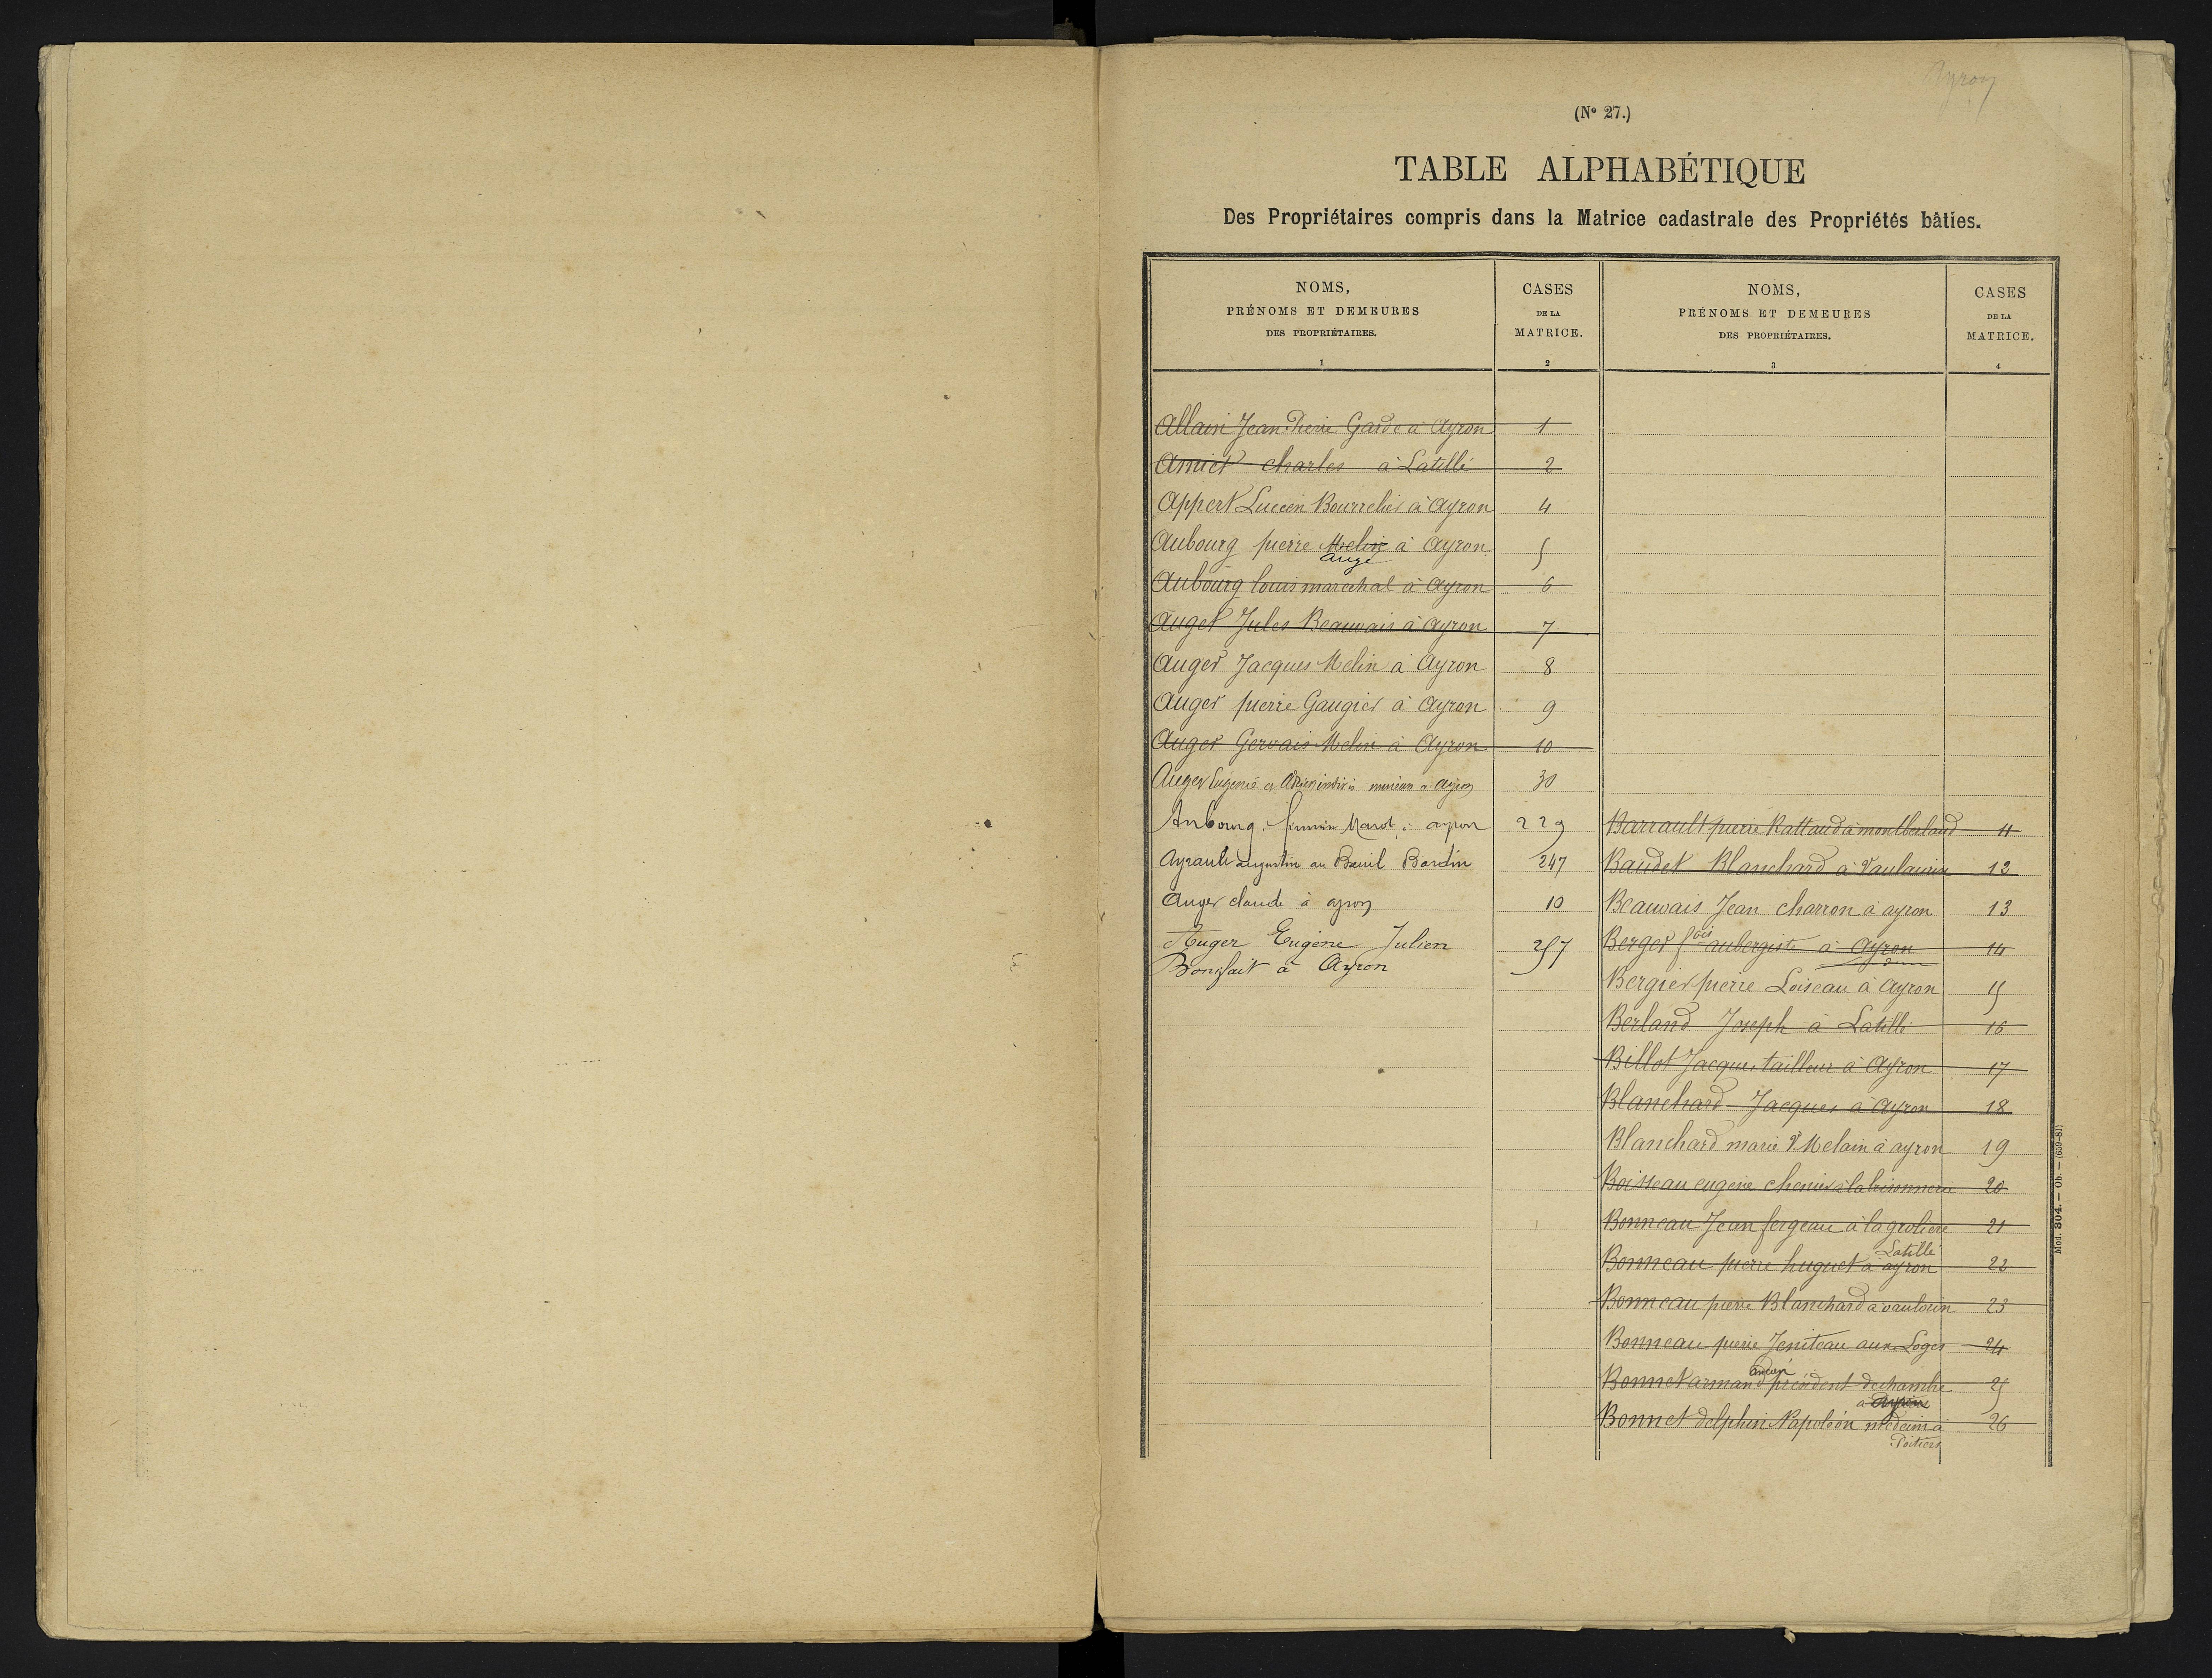 Ayron
(Nº 27.)
TABLE ALPHABÉTIQUE
Des Propriétaires compris dans la Matrice cadastrale des Propriétés bâties.
NOMS,
PRÉNOMS ET DEMEURES
DES PROPRIÉTAIRES.
1
CASES
DE LA
MATRICE.
2
NOMS,
PRÉNOMS ET DEMEURES
DES PROPRIÉTAIRES.
3
CASES
DE LA
MATRICE.
4
Allain Jean Pierre Garde à Ayron 1
Amict charles à Latillé 2
Appert Lucien Bourrelier à Ayron 4
Aubourg pierre Melin à Ayron 5
Auge
Aubourg louis marechal à Ayron 6
Auger Jules Beauvais à Ayron 7
Auger Jacques Melin à Ayron 8
Auger pierre Gaugier à Ayron 9
Auger Gervais Melin à Ayron 10
Auger Eugenie et mineurs a Ayron 30
Aubourg firmin Marot à ayron 229
Ayrault augustin au Breuil Bardin 247
Auger claude à ayron 10
Auger Eugène Julien 257
Bonnfait à Ayron
Barrault pierre Rattaud à montberland 11
Baudet Blanchard à Vaulauvin 12
Beauvais Jean charron à ayron 13
Berger fois aubergiste à Ayron 14
Bergier pierre Loiseau à Ayron 15
Berland Joseph à Latillé 16
Billot Jacques tailleur à Ayron 17
Blanchard Jacques à Ayron 18
Blanchard marie Ve Melain à ayron 19
Boisseau eugene chenier à la brisonnerie 20
Bonneau Jean fergeau à la groliere 21
Latillé
Bonneau pierre huguet à ayron 22
Bonneau pierre Blanchard à vaulorin 23
Bonneau pierre Jeniteau aux Loges 24
ancien
Bonnet armand président de chambre 25
a Ayron
Bonnet delphin Napoléon médecin à 26
Poitiers
Mod. 304. — Ob. — (639-81)